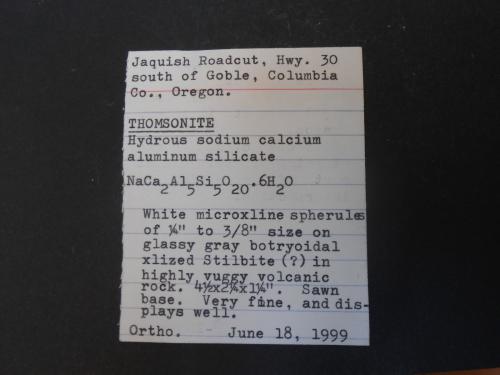 Jaquish Roadcut, Hwy. 30
south of Goble, Columbia
Co., Oregon.
THOMSONITE
Hydrous sodium calcium
aluminum silicate
NaCa₂Al₅Si₅O₂₀·6H₂O
White microxline spherules
of ¼" to 3/8" size on
glassy gray botryoidal
xlized Stilbite (?) in
highly vuggy volcanic
rock. 4½x2¼x1¼". Sawn
base. Very fine, and dis-
plays well.
Ortho. - June 18, 1999